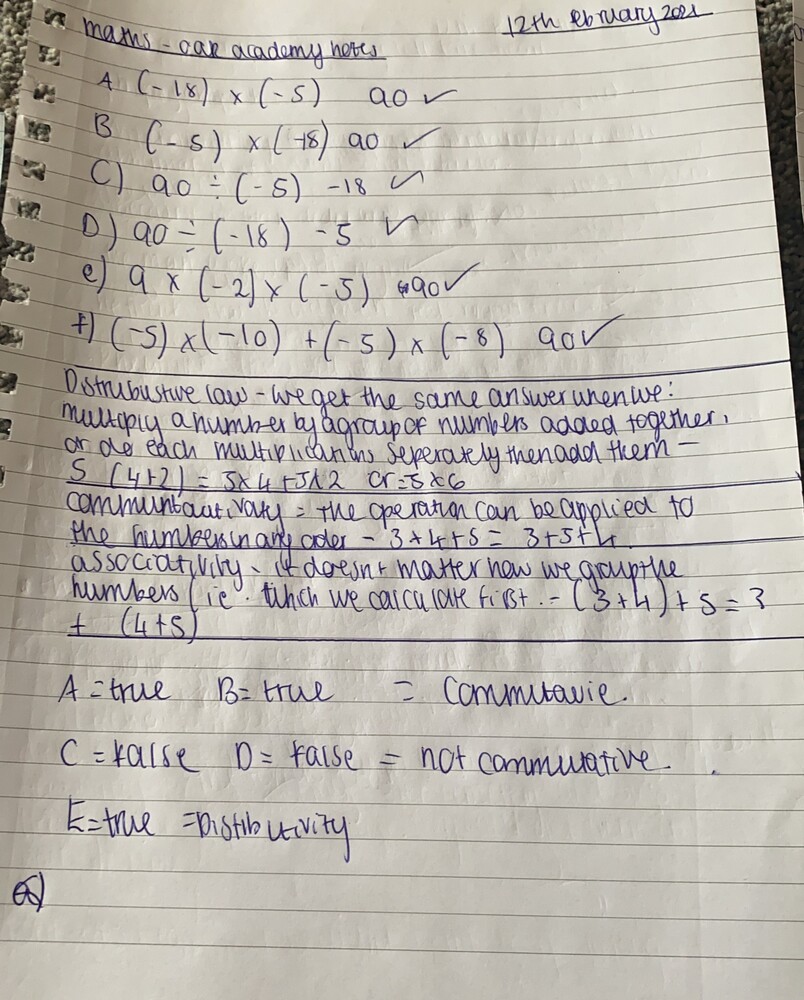 12th ebruary 2021
maths - oak academy notes
A (-18) x (-5) 90 ✓
B (-5) x (-18) 90 ✓
C) 90 ÷ (-5) -18 ✓
D) 90 ÷ (-18) -5 ✓
e) 9 x (-2) x (-5) 90 ✓
f) (-5) x (-10) + (-5) x (-8) 90 ✓
Distrubustive law - we get the same answer when we:
multiply a number by a group of numbers added together,
or do each multiplications seperately then add them -
5 (4+2) = 5x4+5x2 or =5x6
= the operation can be applied to
the numbers in any order - 3+4+5 = 3+5+4
associativity - it doesnt matter how we group the
numbers (ie. which we calculate first. - (3+4)+5=3
+ (4+5)
A = true B = true = commutavie.
C = false D = false = not commutative.
E=true =Distibutivity
a)